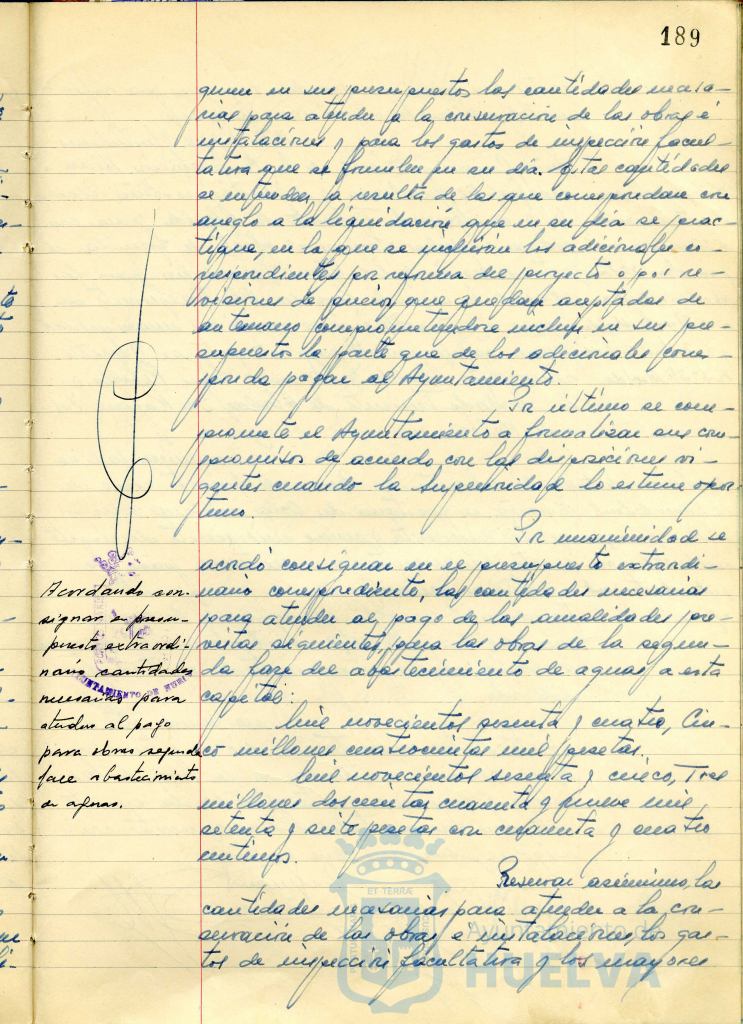 189
guren en sus presupuestos las cantidades necesa-
rias para atender a la conservación de las obras é
instalaciones y para los gastos de inspección facul-
tativa que se formulen en su día. Estas cantidades
se entienden a resulta de las que correspondan con
arreglo a la liquidación que en su día se prac-
tique, en la que se incluirán los adicionales co-
rrespondientes por reforma del proyecto o por re-
visiones de precios, que quedan aceptados de
antemano comprometiendose incluir en sus pre-
supuestos la parte que de los adicionales corres-
ponda pagar al Ayuntamiento.
Por último se com-
promete el Ayuntamiento a formalizar sus com-
promisos de acuerdo con las disposiciones vi-
gentes cuando la Superioridad lo estime opor-
tuno.
Por unanimidad se
acordó consignar en el presupuesto extraordi-
nario correspondiente, las cantidades necesarias
para atender al pago de las anualidades pre-
vistas siguientes, para las obras de la segun-
da fase del abastecimiento de aguas a esta
capital:
Mil novecientos sesenta y cuatro, Cin-
co millones cuatrocientas mil pesetas.
Mil novecientos sesenta y cinco, Tres
millones doscientas cuarenta y nueve mil
setenta y siete pesetas con cuarenta y cuatro
centimos.
Reservar asimismo, las
cantidades necesarias para atender a la con-
servación de las obras e instalaciones, los gas-
tos de inspección facultativa y los mayores
Acordando con-
signar en presu-
puesto extraordi-
nario cantidades
necesarias para
atender al pago
para obras segunda
fase abastecimiento
de aguas.
AYUNTAMIENTO DE HUEL
ET TERRÆ
Ayuntamiento de
HUELVA